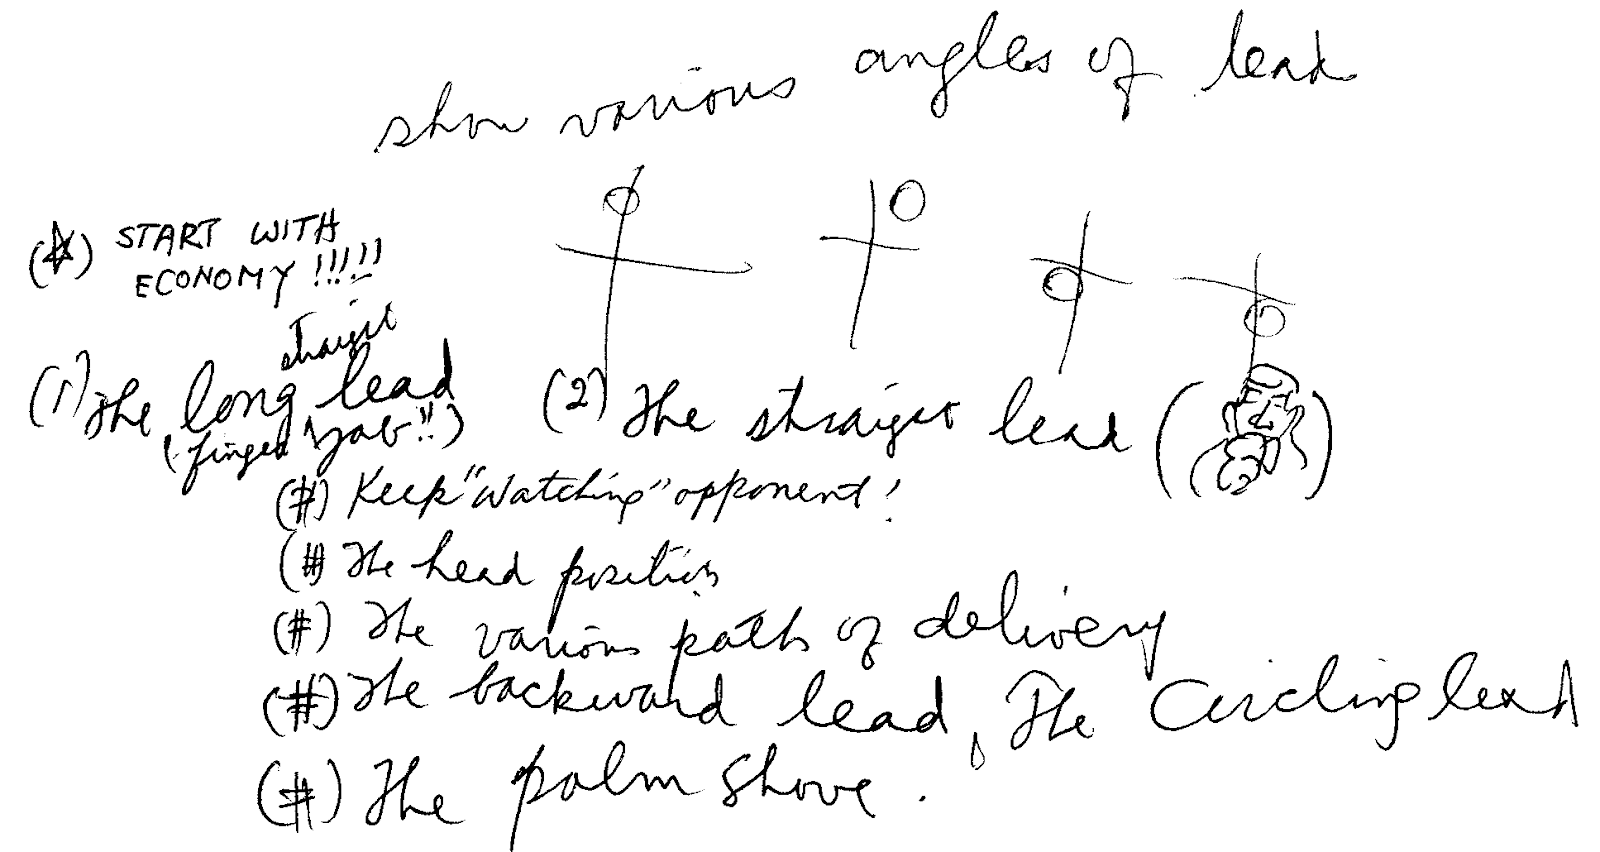 show various angles of lead
(☆) START WITH
ECONOMY !!!!!
straight
(1) The long lead
(finger jab!!)
(2) The straight lead
(#) Keep "watching" opponent!
(#) The head position
(#) The various paths of delivery
(#) The backward lead, The Circling lead
(#) The palm shove.